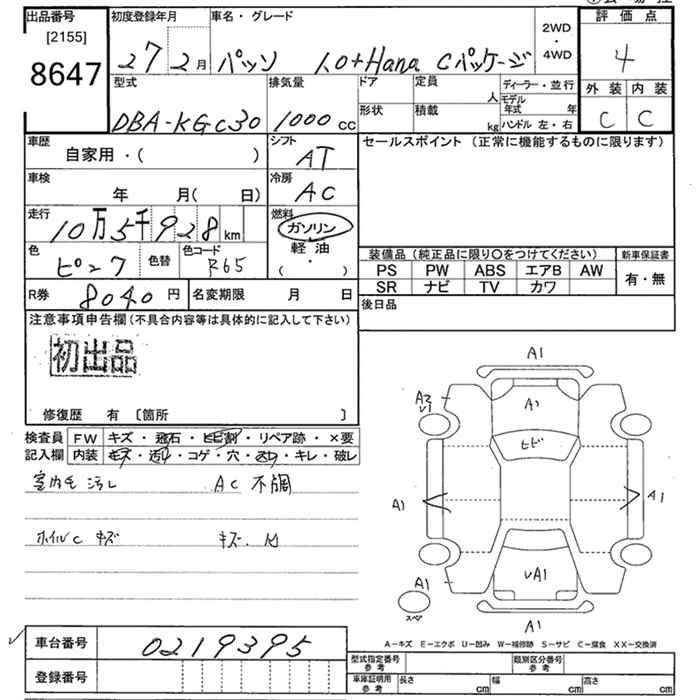 出品番号
[2155]
8647
初度登録年月
27 2月
車名・グレード
パッソ 1.0+Hana Cパッケージ
2WD
・
4WD
評価点
4
外装 内装
C C
型式
DBA-KGC30
排気量
1000 cc
ドア
形状
定員
人
積載
kg
ディーラー・並行
モデル年式 年
ハンドル 左・右
車歴
自家用・( )
シフト
AT
セールスポイント (正常に機能するものに限ります)
車検
年 月( 日)
冷房
AC
走行
10万5千928km
燃料
ガソリン
軽油
( ・ )
色
ピンク
色替
色コード
R65
装備品 (純正品に限り〇をつけてください)
新車保証書
PS PW ABS エアB AW
有・無
SR ナビ TV カワ
R券 8040円
名変期限 月 日
後日品
注意事項申告欄(不具合内容等は具体的に記入して下さい)
初出品
修復歴 有 〔箇所 〕
検査員
記入欄
FW キズ・飛石・ヒビ割・リペア跡・×要
内装 キズ・汚れ・コゲ・穴・スレ・キレ・破レ
室内毛 汚レ AC 不調
ホイルC キズ
キズ. 凹
A1
A2
V1
A1
ヒビ
A1
A1
A1
スペア
VA1
A1
A-キズ E-エクボ U-凹み W-補修跡 S-サビ C-腐食 XX-交換済
車台番号 0219395
登録番号
型式指定番号
参考
類別区分番号
参考
車庫証明用
参考
長さ cm 幅 cm 高さ cm